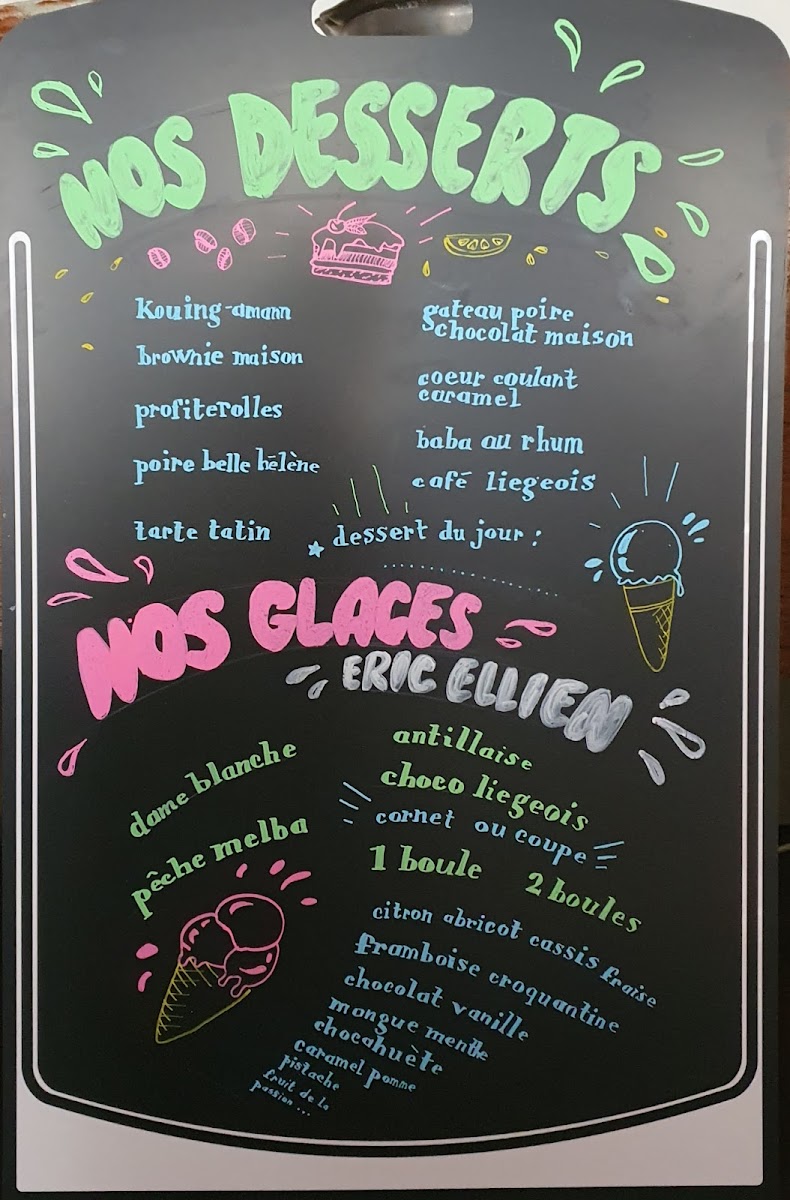 NOS DESSERTS
Kouing-amann
brownie maison
profiterolles
poire belle hélène
tarte tatin
gateau poire
chocolat maison
coeur coulant
caramel
baba au rhum
café liegeois
dessert du jour :
NOS GLACES
ERIC ELLIEN
dame blanche
pêche melba
antillaise
choco liegeois
cornet ou coupe
1 boule 2 boules
citron abricot cassis fraise
framboise croquantine
chocolat vanille
mangue menthe
chocahuète
caramel pomme
pistache
fruit de la
passion ...